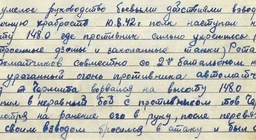 умелое руководство боевыми действиями взвод
ничу храбрости 10.8.42г. полк наступал н
ту 148.0 где противник сильно укрепился
троенные дзоты и закопанные танки Рота
томатчиков совместно со 2м батальоном н
ураганный огонь противника автоматч
ворвались на высоту 148.0
или в неравный бой с противником тов Чер
мотря на ранение его в руку, после перевяз
своим взводом бросился в атаку и был